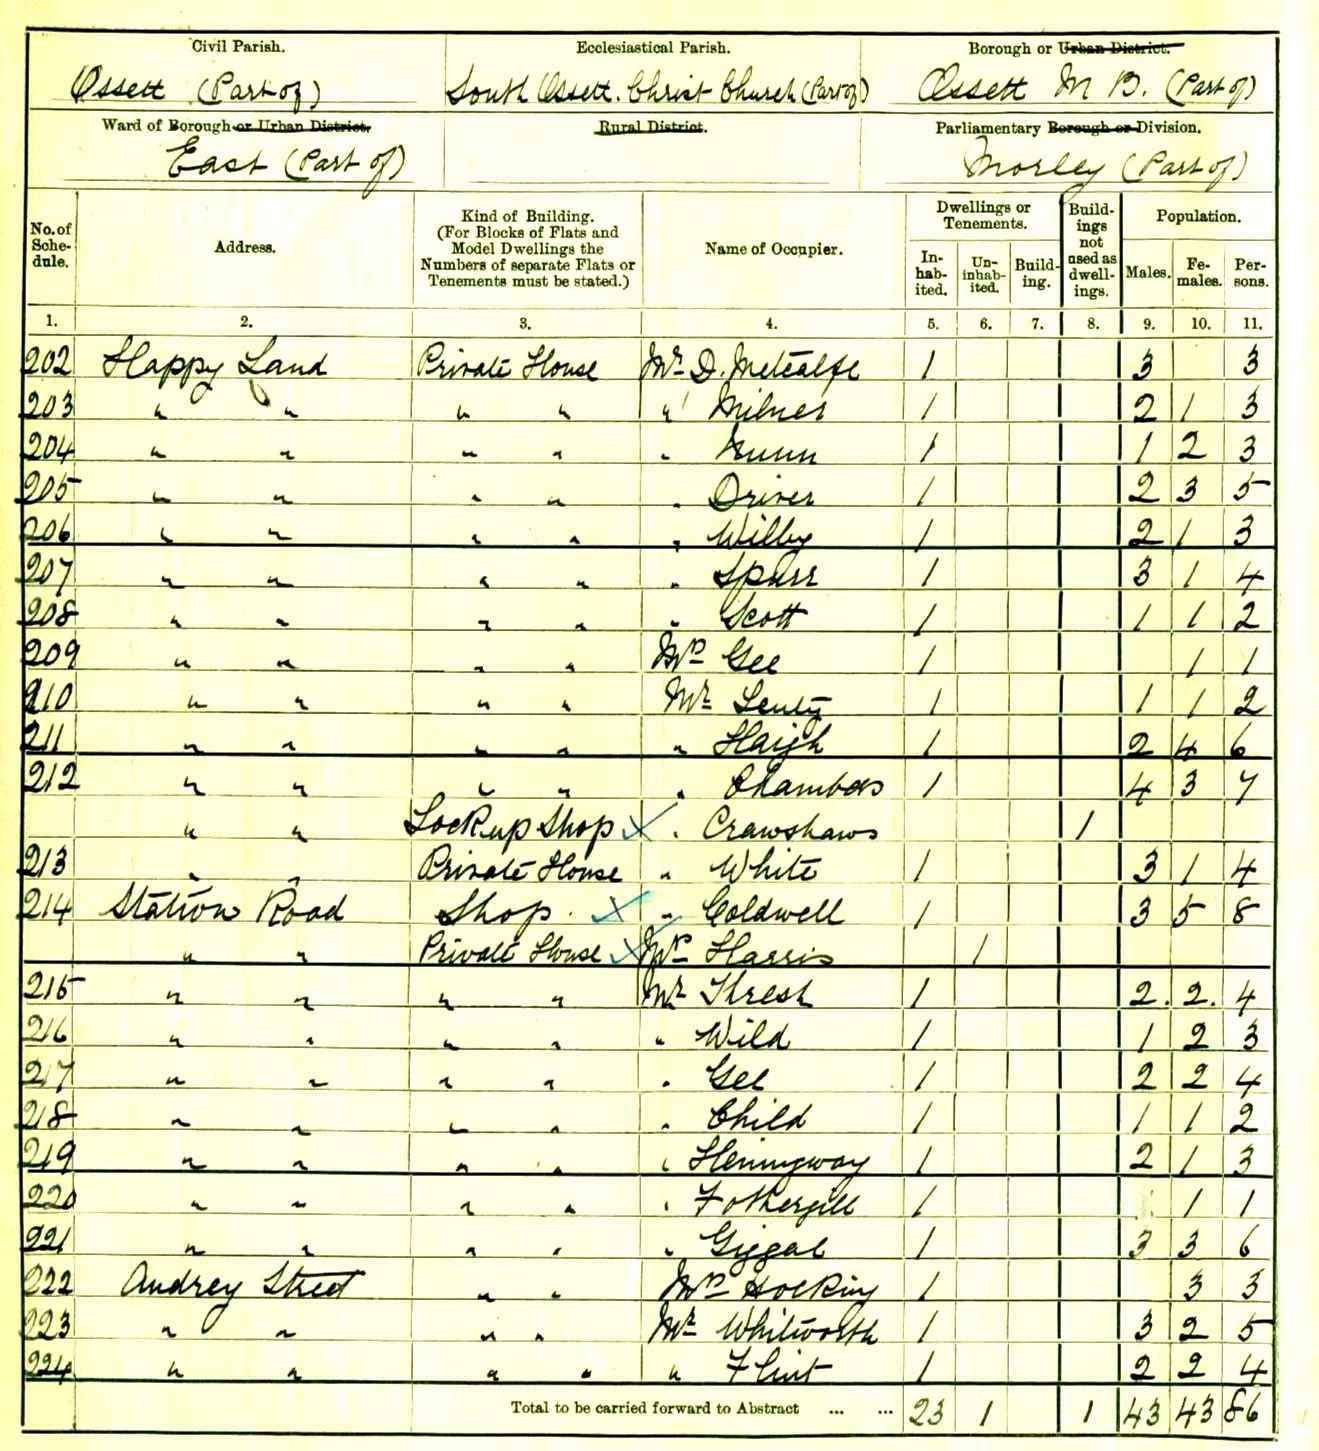 Civil Parish. Ecclesiastical Parish. Borough or Urban District.
Ossett (Part of) South Ossett. Christ Church (Part of) Ossett M B. (Part of)
Ward of Borough or Urban District. Rural District. Parliamentary Borough or Division.
East (Part of) Morley (Part of)
No. of Schedule. Address. Kind of Building. (For Blocks of Flats and Model Dwellings the Numbers of separate Flats or Tenements must be stated.) Name of Occupier. Dwellings or Tenements. Inhabited. Uninhabited. Building. Buildings not used as dwellings. Population. Males. Females. Persons.
1. 2. 3. 4. 5. 6. 7. 8. 9. 10. 11.
202 Happy Land Private House Mr D. Metcalfe 1 3 3
203 " " " " " Milnes 1 2 1 3
204 " " " " " Nunn 1 1 2 3
205 " " " " " Driver 1 2 3 5
206 " " " " " Wilby 1 2 1 3
207 " " " " " Spurr 1 3 1 4
208 " " " " " Scott 1 1 1 2
209 " " " " Mrs Gee 1 1 1
210 " " " " Mr 1 1 1 2
211 " " " " " Haigh 1 2 4 6
212 " " " " " Chambers 1 4 3 7
" " Lock up Shop X " Crawshaws 1
213 " " Private House " White 1 3 1 4
214 Station Road Shop. X " Coldwell 1 3 5 8
" " Private House X Mrs Harris 1
215 " " " " Mr Thresh 1 2. 2. 4
216 " " " " " Wild 1 1 2 3
217 " " " " " Gee 1 2 2 4
218 " " " " " Child 1 1 1 2
219 " " " " " Hemingway 1 2 1 3
220 " " " " " Fothergill 1 1 1
221 " " " " " Giggal 1 3 3 6
222 Audrey Street " " Mrs Hocking 1 3 3
223 " " " " Mr Whitworth 1 3 2 5
224 " " " " " Flint 1 2 2 4
Total to be carried forward to Abstract ... ... 23 1 1 43 43 86